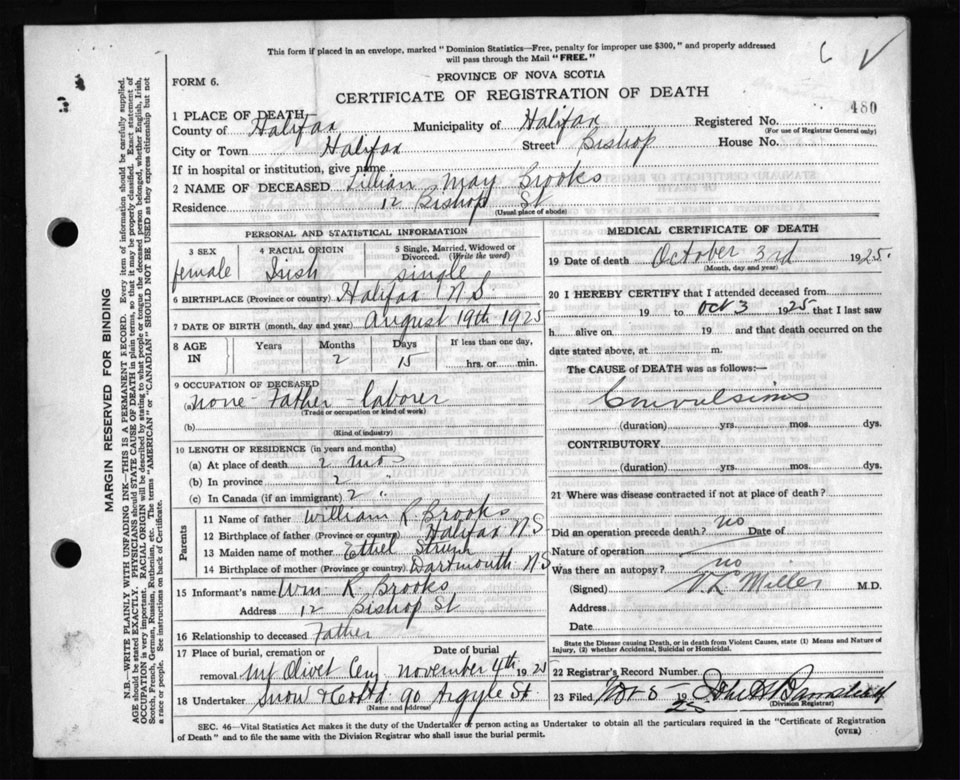 This form if placed in an envelope, marked "Dominion Statistics—Free, penalty for improper use $300," and properly addressed
will pass through the Mail "FREE."
FORM 6.
PROVINCE OF NOVA SCOTIA
CERTIFICATE OF REGISTRATION OF DEATH
480
1 PLACE OF DEATH,
County of Halifax Municipality of Halifax Registered No.
(For use of Registrar General only)
City or Town Halifax Street Bishop House No.
If in hospital or institution, give name
2 NAME OF DECEASED Lillian May Brooks
Residence 12 Bishop St
(Usual place of abode)
PERSONAL AND STATISTICAL INFORMATION
3 SEX 4 RACIAL ORIGIN 5 Single, Married, Widowed or
Divorced. (Write the word)
female Irish single
6 BIRTHPLACE (Province or country) Halifax N.S.
7 DATE OF BIRTH (month, day and year) August 19th 1925
8 AGE IN Years Months Days If less than one day,
2 15 hrs. or min.
9 OCCUPATION OF DECEASED
(a) none - Father - laborer
(Trade or occupation or kind of work)
(b)
(Kind of industry)
10 LENGTH OF RESIDENCE (in years and months)
(a) At place of death 2 mos
(b) In province 2 "
(c) In Canada (if an immigrant) 2 "
Parents
11 Name of father William R. Brooks
12 Birthplace of father (Province or country) Halifax N.S.
13 Maiden name of mother Ethel
14 Birthplace of mother (Province or country) Dartmouth N.S
15 Informant's name Wm R. Brooks
Address 12 Bishop St
16 Relationship to deceased Father
17 Place of burial, cremation or Date of burial
removal Mt Olivet Cem, November 4th 1925
18 Undertaker Snow & Co Ltd 90 Argyle St.
(Name and address)
MEDICAL CERTIFICATE OF DEATH
19 Date of death October 3rd 1925.
(Month, day and year)
20 I HEREBY CERTIFY that I attended deceased from
19 to Oct 3 1925 that I last saw
h alive on 19 and that death occurred on
date stated above, at m.
The CAUSE of DEATH was as follows:—
Convulsions
(duration) yrs. mos. dys.
CONTRIBUTORY
(duration) yrs. mos. dys.
21 Where was disease contracted if not at place of death?
Did an operation precede death? no Date of
Nature of operation
Was there an autopsy? no
(Signed) V L Miller M.D.
Address
Date
State the Disease causing Death, or in death from Violent Causes, state (1) Means and Nature of
Injury, (2) whether Accidental, Suicidal or Homicidal.
22 Registrar's Record Number
23 Filed Nov 5 1925
(Division Registrar)
SEC. 46—Vital Statistics Act makes it the duty of the Undertaker or person acting as Undertaker to obtain all the particulars required in the "Certificate of Registration
of Death" and to file the same with the Division Registrar who shall issue the burial permit.
(OVER)
MARGIN RESERVED FOR BINDING
N.B.—WRITE PLAINLY WITH UNFADING INK—THIS IS A PERMANENT RECORD. Every item of information should be carefully supplied.
AGE should be stated EXACTLY. PHYSICIANS should STATE CAUSE OF DEATH in plain terms, so that it may be properly classified. Exact statement of
OCCUPATION is very important. RACIAL ORIGIN will be described by stating to what people or tongue the deceased person belonged, whether English, Irish,
Scotch, French, German, Russian, Ruthenian, etc. The terms "AMERICAN" or "CANADIAN" SHOULD NOT BE USED as they express citizenship but not
a race or people. See instructions on back of Certificate.